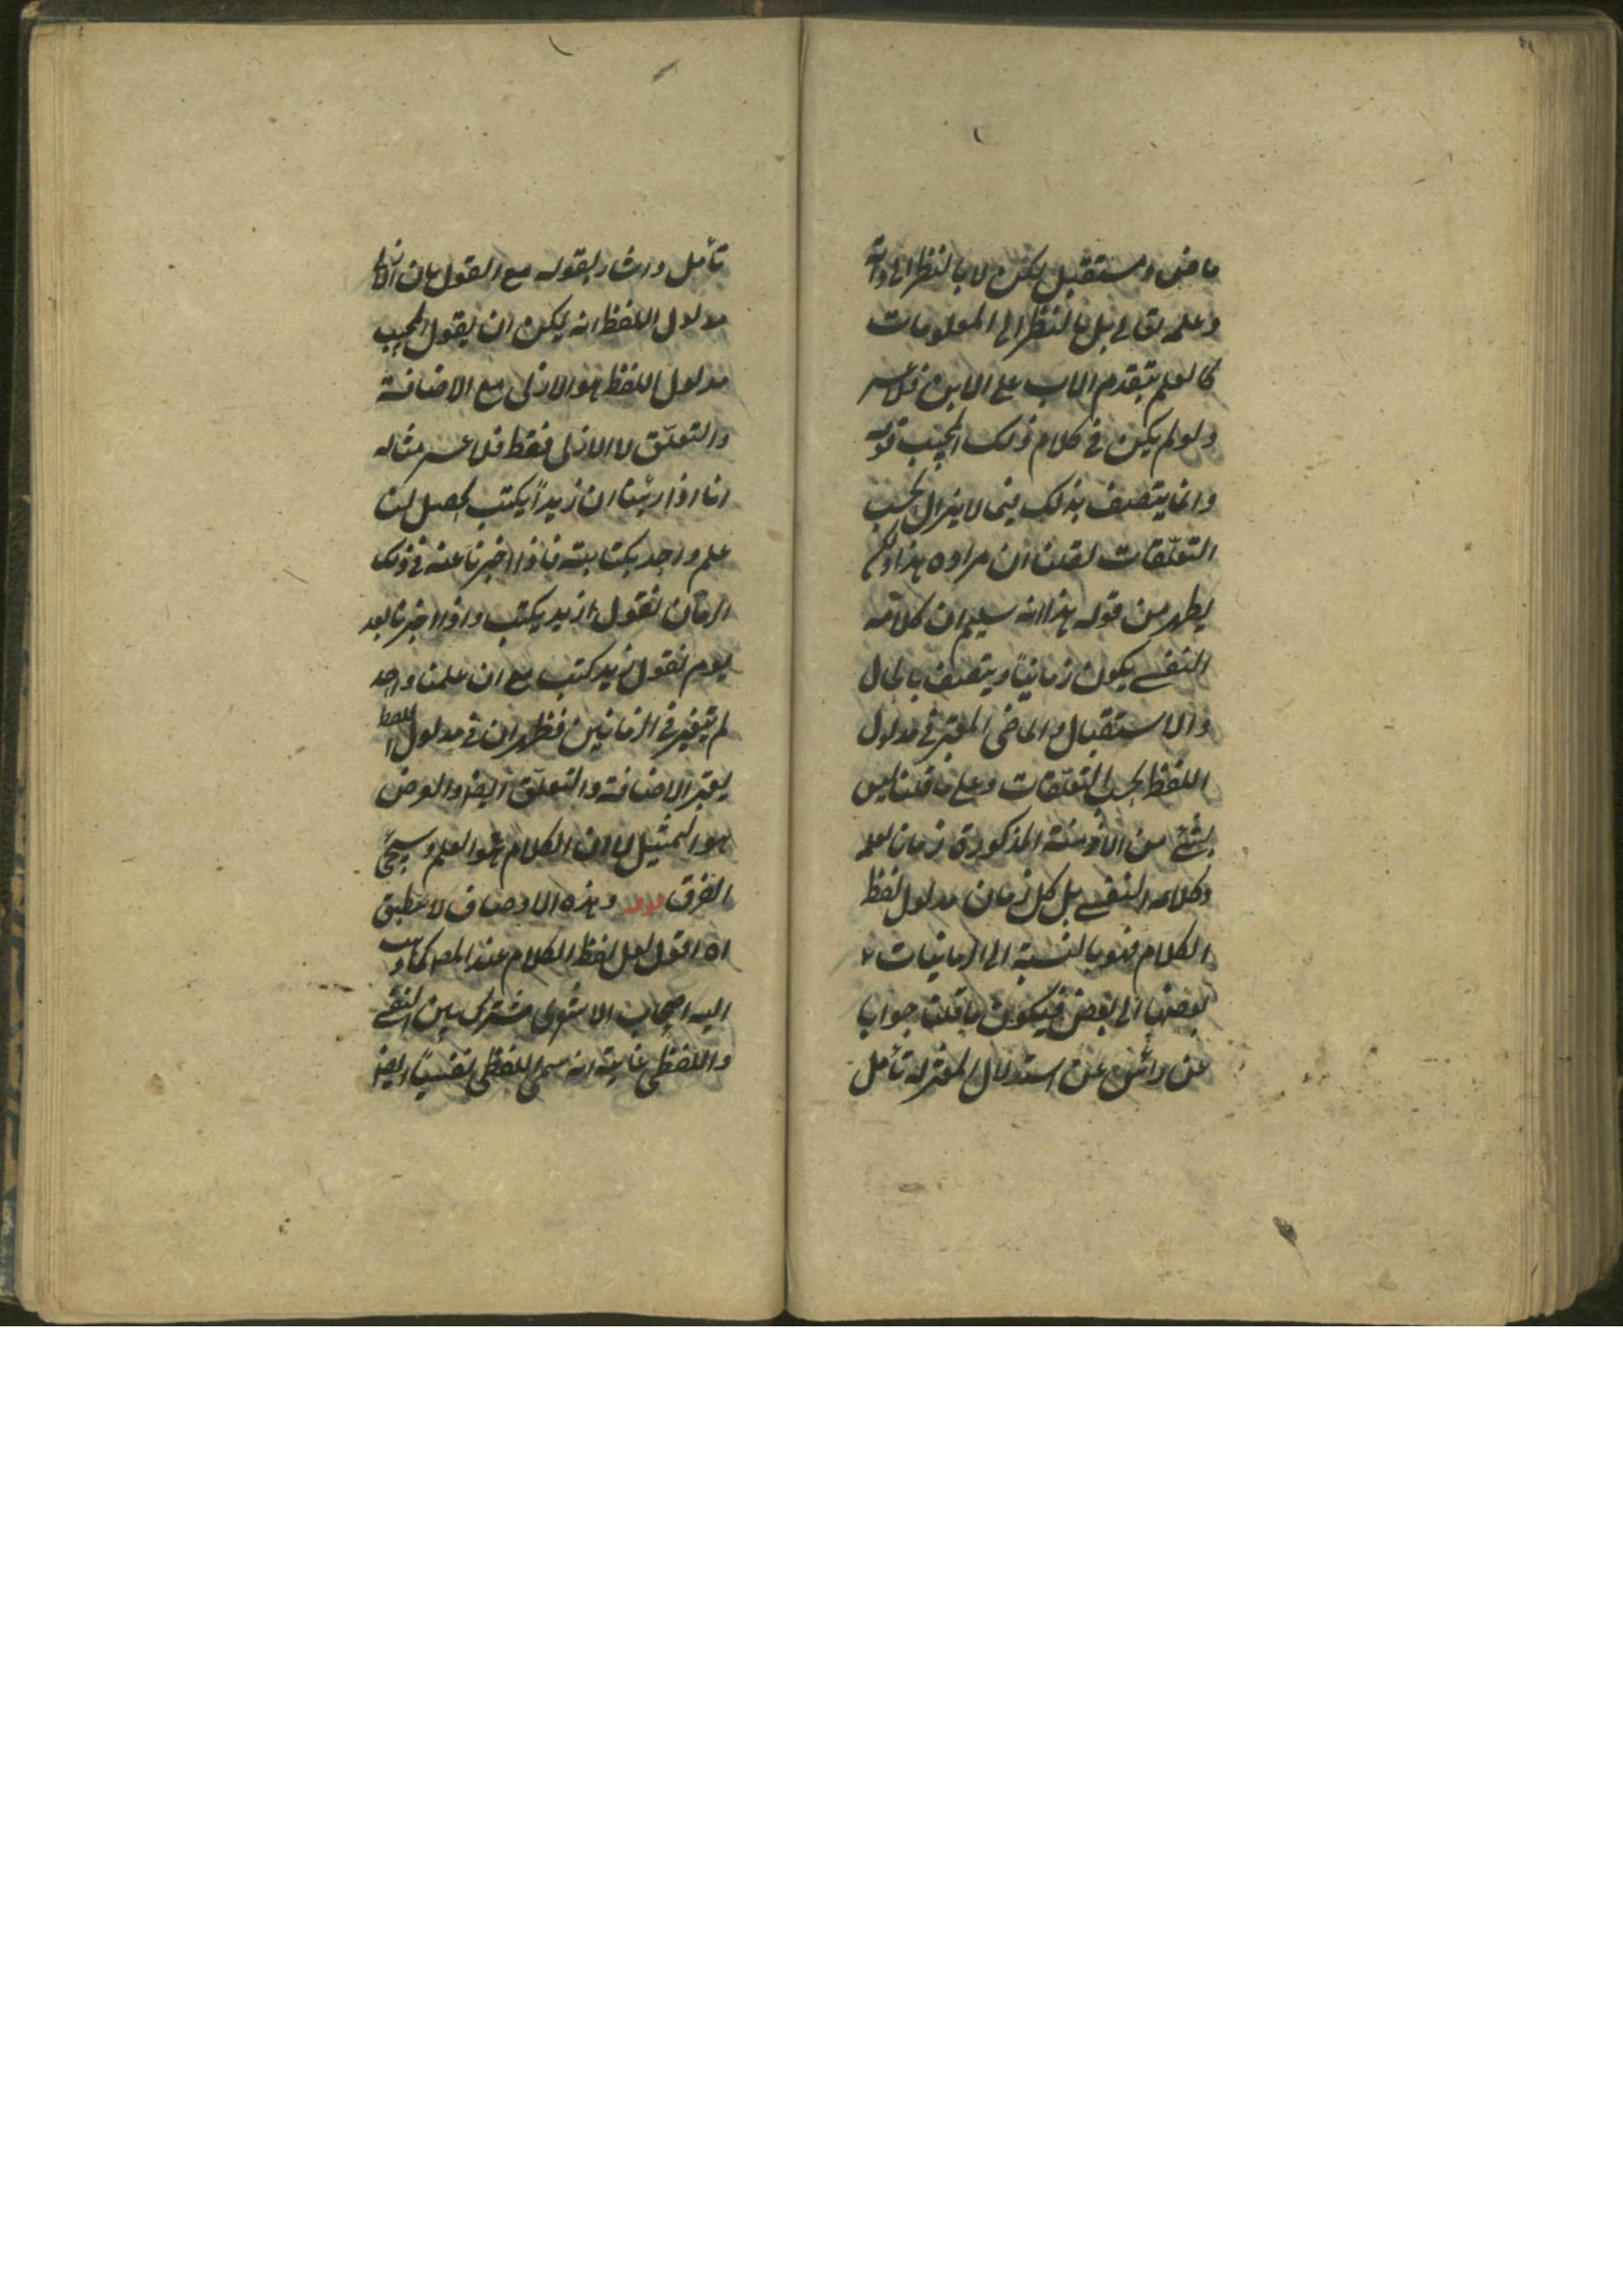 ماض ومستقبل لكن لا بالنظر الى ذاته
وعلمه تعالى بل بالنظر الى المعلومات
كالعلم بتقدم الاب على الابن فلا عسر
ولو لم يكن فى كلام ذلك المجيب قوله
وانما يتصف بذلك فيما لا يزال بحسب
التعلّقات لقلنا ان مراده هذا ولكن
يظهر من قوله هذا انه سلم ان كلامه
النفسے يكون زمانيّاً ويتصف بالحال
والاستقبال والماضى المعتبر فى مدلول
اللفظ بحسب التعلّقات وعلى ما قلنا ليس
بشئے من الازمنة المذكورة زمان لعلمه
وكلامه النفسے بل كل زمان مدلول لفظ
الكلام فهو بالنسبة الى الزمانيات
بعضها الى بعض فيكون ما قلنا جوابا
عن استدلال المعتزلة تأمل
تأمل واشار بقوله مع القول بان الازلى
مدلول اللفظ انه يمكن ان يقول المجيب
مدلول اللفظ هو الازلى مع الاضافة
والتعلّق لا الازلى فقط فلا عسر مثاله
انا اذا رئينا ان زيداً يكتب يحصل لنا
علم واحد بكتابته فاذا اخبرنا عنه فى ذلك
الزمان نقول زيد يكتب واذا اخبرنا بعد
يوم نقول زيد كتب مع ان علمنا واحد
لم يتغير فى الزمانين فظهر ان فى مدلول اللفظ
يعتبر الاضافة والتعلّق ايضا والغرض
هو التمثيل لا ان الكلام هو العلم وسيجئ
الفرق قوله وهذه الاوصاف لا تنطبق
اه اقول لعل لفظ الكلام عند المص كما ذهب
اليه اصحاب الاشعرى مشترك بين النفسے
واللفظى غايته انه سمى اللفظى نفسيّاً ايضا